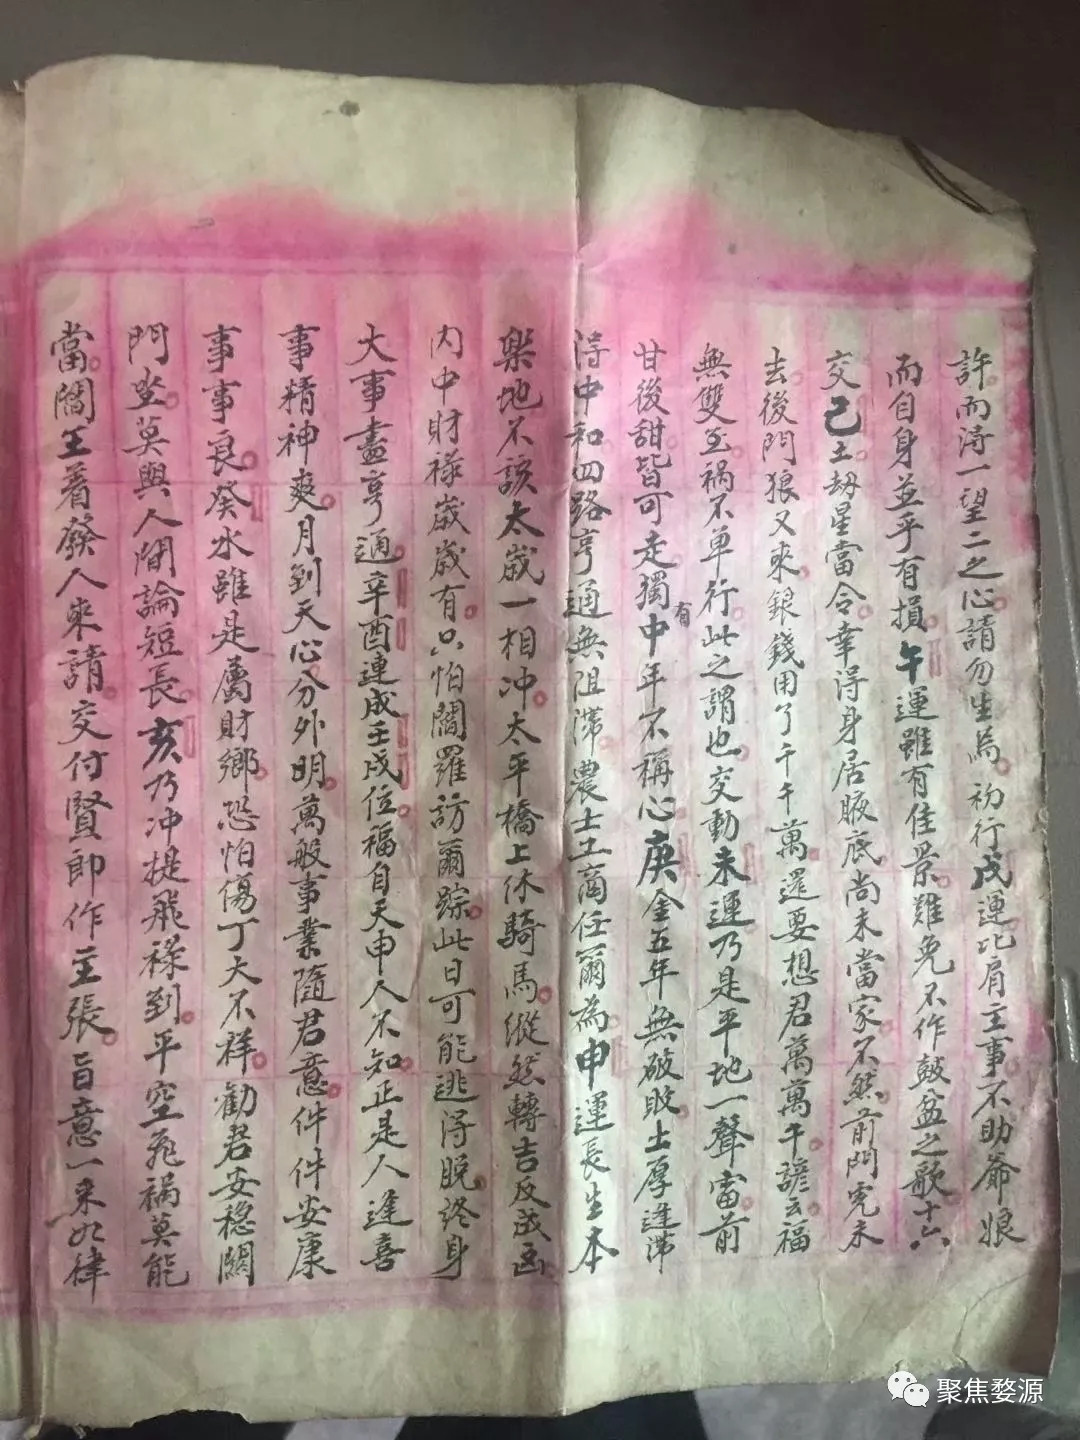 許而淂一望二之心請勿生焉初行戊運比肩主事不助爺娘
而自身並乎有損午運雖有佳景難免不作鼓盆之歌十六
交己土刼星當令幸得身居腋底尚未當家不然前門虎未
去後門狼又來銀錢用了千千萬還要想君萬萬千諺云福
無雙至禍不单行此之謂也交動未運乃是平地一聲雷前
甘後甜皆可走獨有中年不稱心庚金五年無破敗土厚逢滞
淂中和四路亨通無阻滞農士工商任爾為申運長生本
樂地不該太歲一相冲太平橋上休騎馬縱然轉吉反成凶
内中財禄歲歲有只怕閻羅訪爾踪此日可能逃淂脱終身
大事盡亨通辛酉連成壬戌位福自天申人不知正是人逢喜
事精神爽月到天心分外明萬般事業隨君意件件安康
事事良癸水雖是属財鄉恐怕傷丁大不祥勸君安穏關
門坐莫與人間論短長亥乃冲提飛禄到平空飛禍莫能
當閻王着發人來請交付賢郎作主張旨意一來如律
聚焦婺源